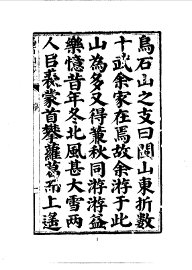 烏石山之支曰閩山東折數
十武余家在焉故余游于此
山為多又得董秋同游游益
樂憶昔年冬北風甚大雪兩
人臼裘蒙首攀蘿葛而上遂